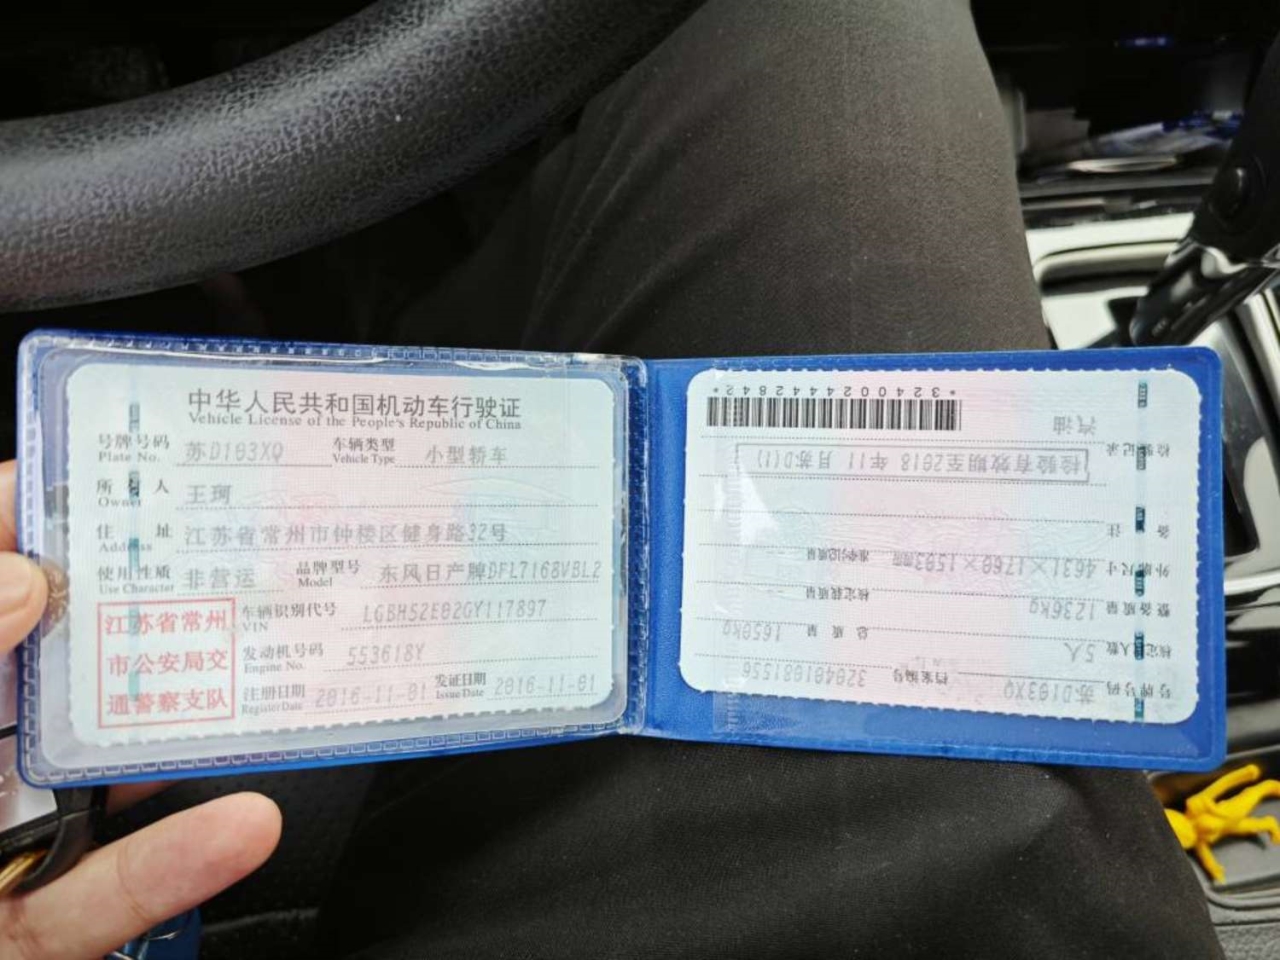 中华人民共和国机动车行驶证
Vehicle License of the People's Republic of China
号牌号码 Plate No. 苏D103XQ 车辆类型 Vehicle Type 小型轿车
所有人 Owner 王珂
住址 Address 江苏省常州市钟楼区健身路32号
使用性质 Use Character 非营运 品牌型号 Model 东风日产牌DFL7168VBL2
车辆识别代号 VIN LGBH52E02GY117897
发动机号码 Engine No. 553618Y
注册日期 Register Date 2016-11-01 发证日期 Issue Date 2016-11-01
江苏省常州
市公安局交
通警察支队
号牌号码 苏D103XQ 档案编号 320401081556
核定人数 5人 总质量 1650kg
整备质量 1236kg 核定载质量
外廓尺寸 4631×1760×1503mm 准牵引总质量
备注
检验记录 检验有效期至2018年11月苏D(1)
汽油
*3240024442842*